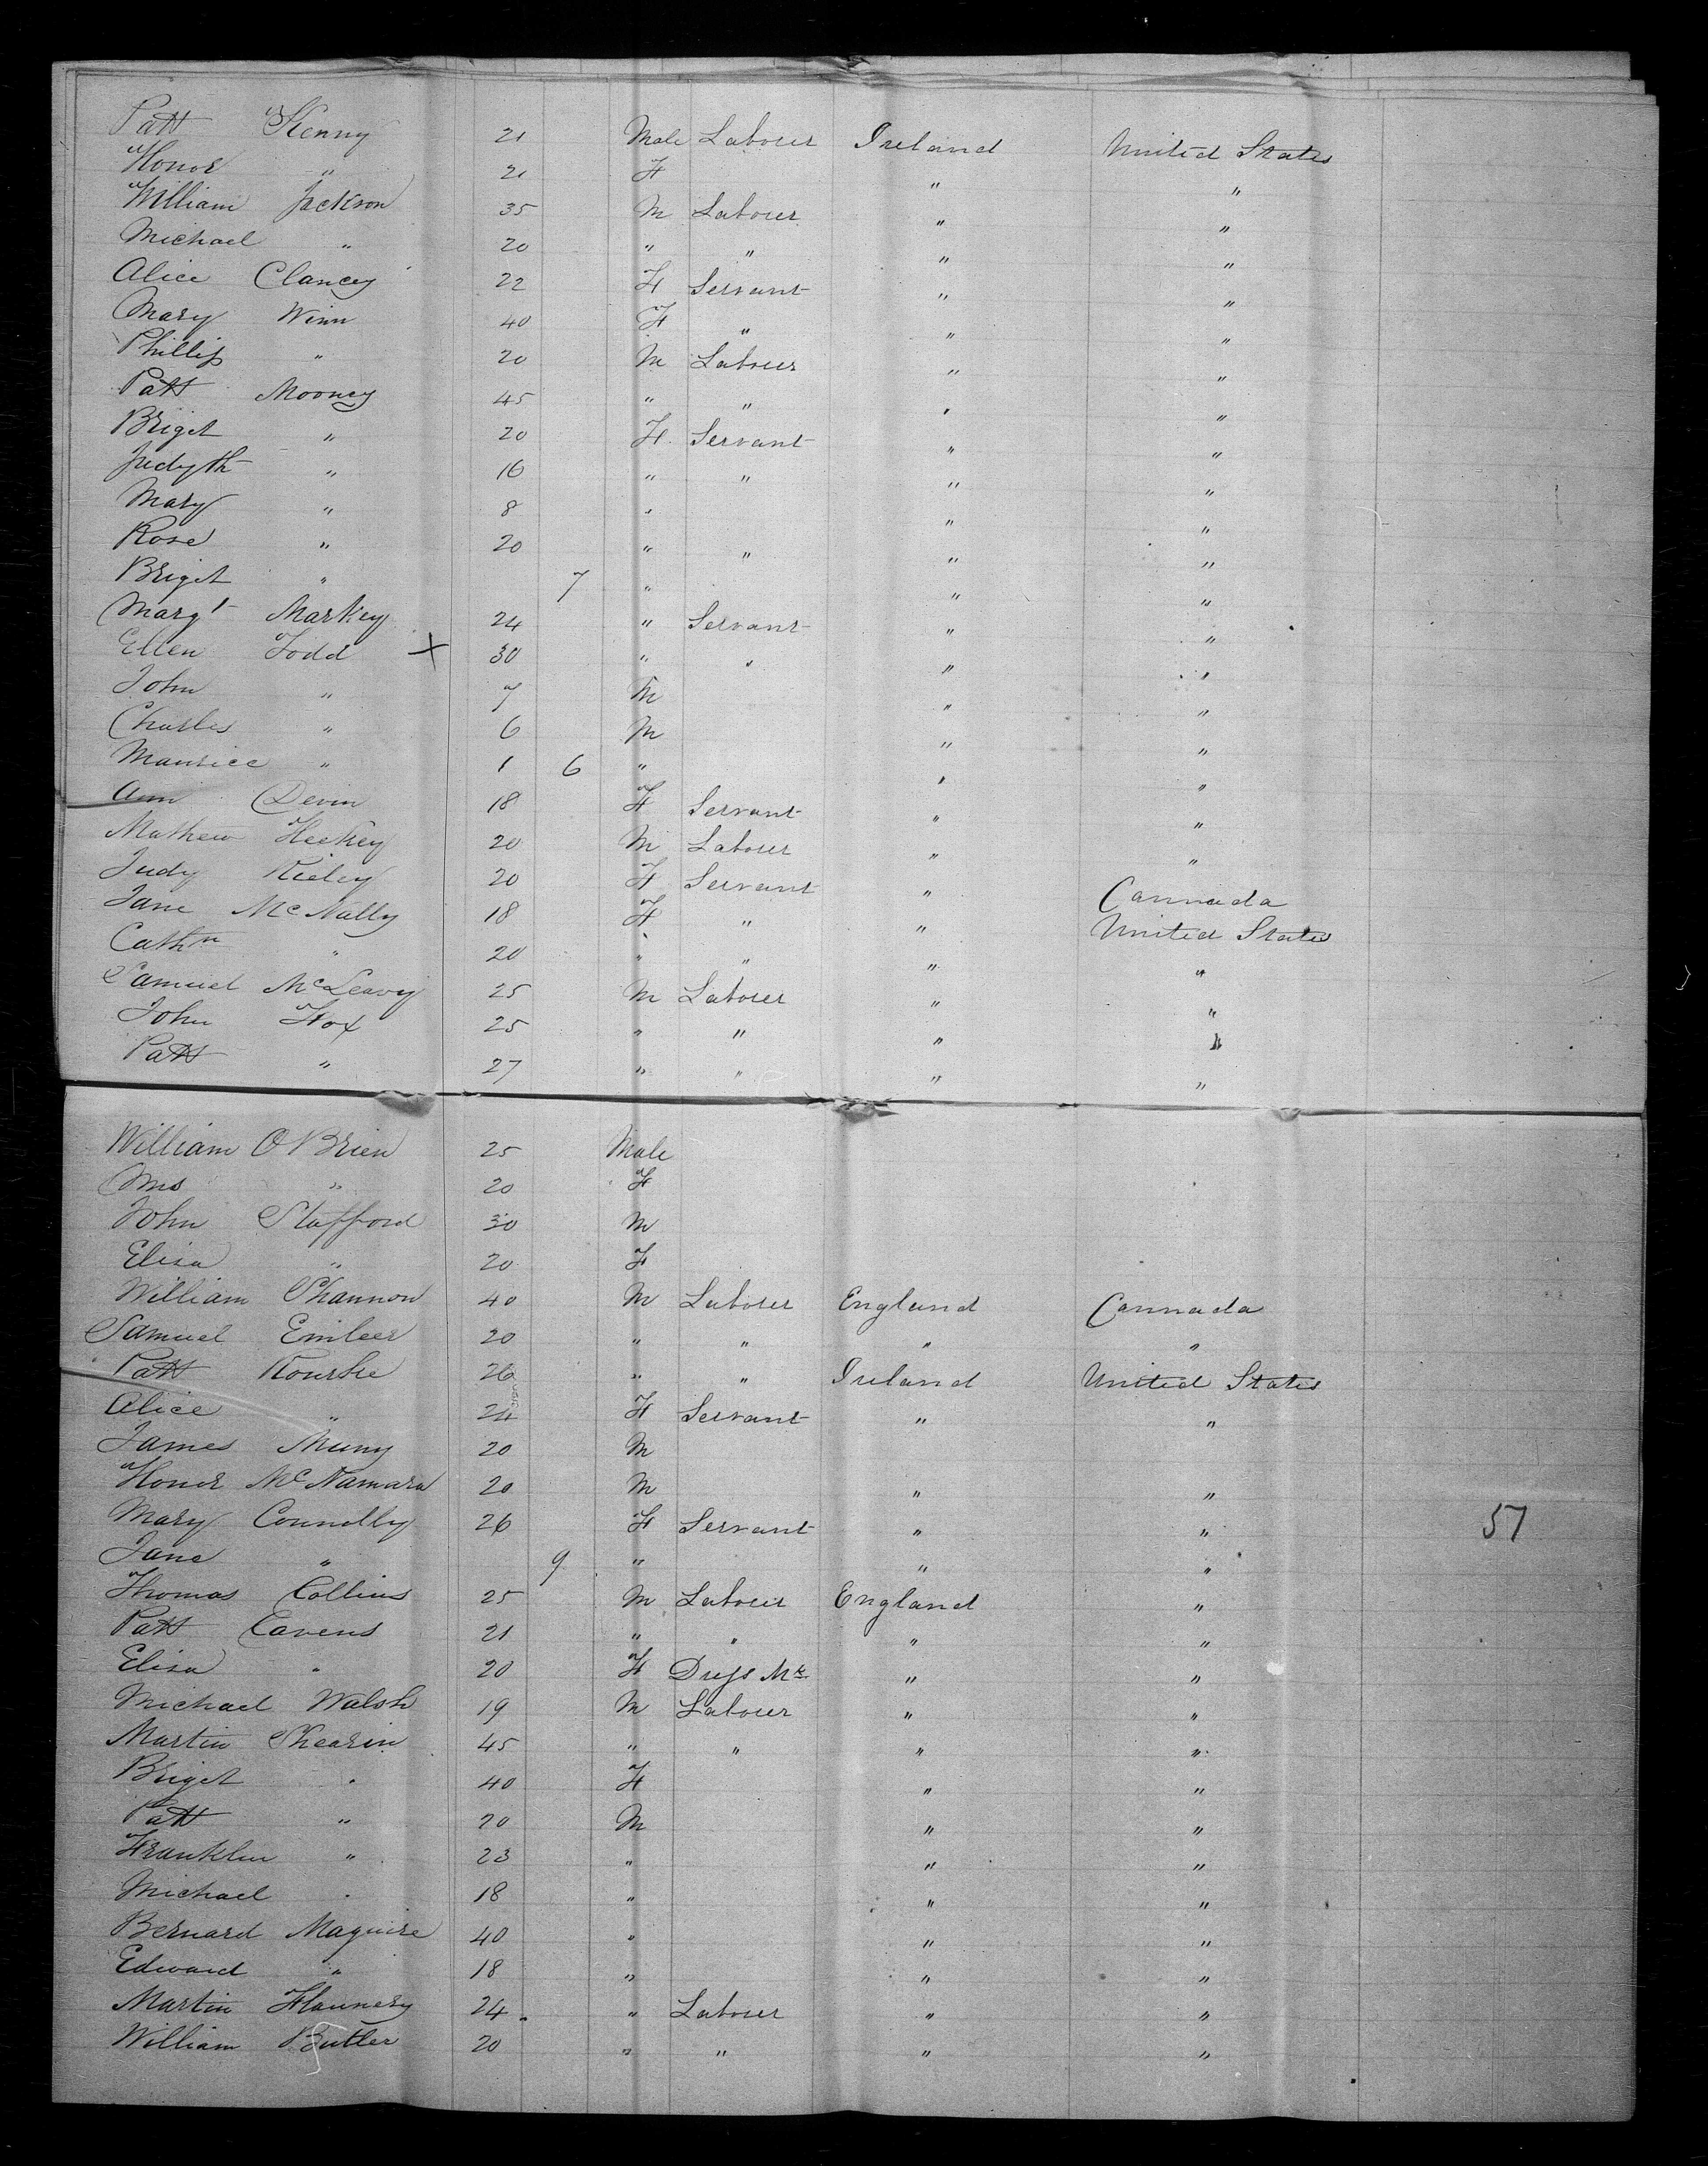 Patt Kenny 21 Male Laborer Ireland United States
Honor " 21 F " "
William Jackson 35 M Laborer " "
Michael " 20 " " " "
Alice Clancey 22 F Servant " "
Mary Winn 40 F " " "
Phillip " 20 M Laborer " "
Patt Mooney 45 " " " "
Briget " 20 F Servant " "
Judyth " 16 " " " "
Mary " 8 " " "
Rose " 20 " " " "
Briget " 7 " " "
Margt Markey 24 " Servant " "
Ellen Todd X 30 " " " "
John " 7 M " "
Charles " 6 M " "
Maurice " 1 6 " " "
Ann Devin 18 F Servant " "
Mathew Heekey 20 M Laborer " "
Judy Rieley 20 F Servant " Cannada
Jane McNally 18 F " " United States
Cathn " 20 " " " "
Samuel McLeavy 25 M Laborer " "
John Fox 25 " " " "
Patt " 27 " " " "
William OBrien 25 Male
Mrs " 20 F
John Stafford 30 M
Elisa " 20 F
William Shannon 40 M Laborer England Cannada
Samuel 20 " " " "
Patt Rourke 26 " " Ireland United States
Alice " 24 F Servant " "
James 20 M
Honor McNamara 20 M " "
Mary Connolly 26 F Servant " " 57
Jane " 9 " " "
Thomas Collins 25 M Laborer England "
Patt Cavens 21 " " " "
Elisa " 20 F Dress Mr " "
Michael Walsh 19 M Laborer " "
Martin Shearin 45 " " " "
Briget " 40 F " "
Patt " 20 M " "
Franklin " 23 " " "
Michael " 18 " " "
Bernard Maguire 40 " " "
Edward " 18 " " "
Martin Flannery 24 " Laborer " "
William Butler 20 " " " "